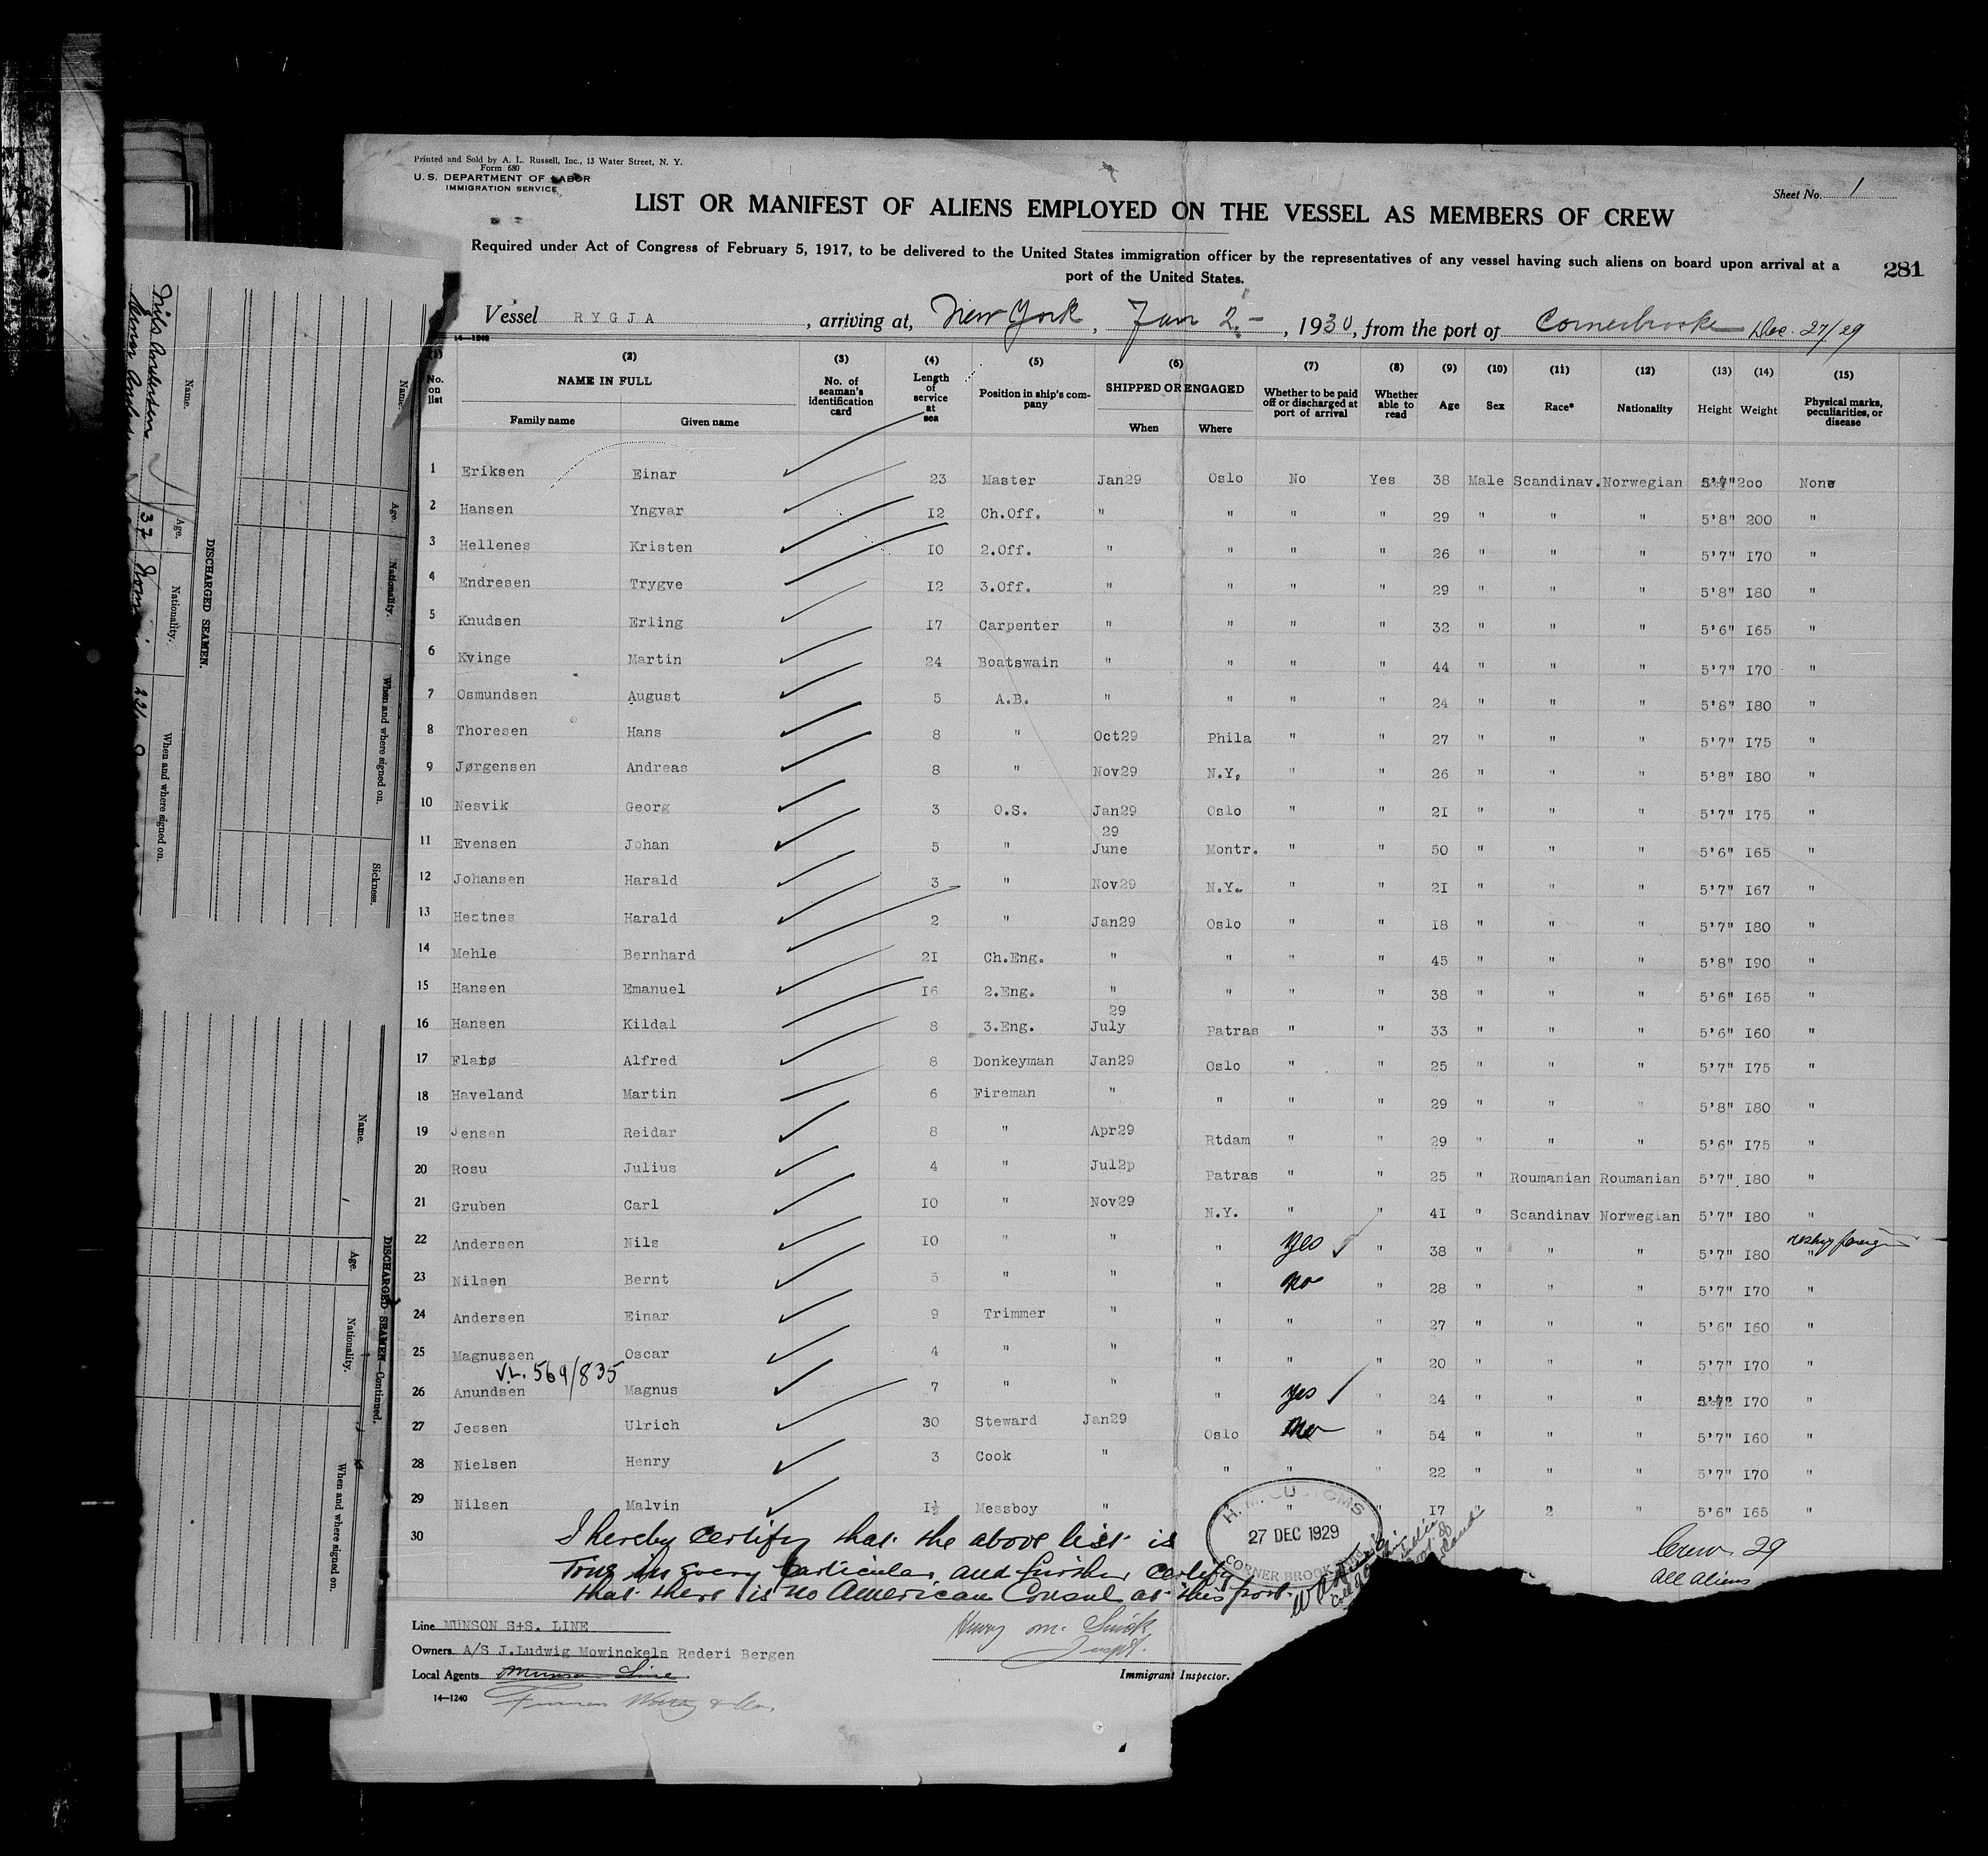 Printed and Sold by A. L. Russell, Inc., 13 Water Street, N. Y.
Form 680
U. S. DEPARTMENT OF LABOR
IMMIGRATION SERVICE
Sheet No. 1
LIST OR MANIFEST OF ALIENS EMPLOYED ON THE VESSEL AS MEMBERS OF CREW
Required under Act of Congress of February 5, 1917, to be delivered to the United States immigration officer by the representatives of any vessel having such aliens on board upon arrival at a
port of the United States.
281
Vessel RYGJA, arriving at, New York, Jan 2.-, 1930, from the port of Cornerbrooke Dec. 27/29
14-1240
(1) (2) (3) (4) (5) (6) (7) (8) (9) (10) (11) (12) (13) (14) (15)
No. on list NAME IN FULL Family name Given name No. of seaman's identification card Length of service at sea Position in ship's company SHIPPED OR ENGAGED When Where Whether to be paid off or discharged at port of arrival Whether able to read Age Sex Race* Nationality Height Weight Physical marks, peculiarities, or disease
1 Eriksen Einar 23 Master Jan29 Oslo No Yes 38 Male Scandinav. Norwegian 5'7" 200 None
2 Hansen Yngvar 12 Ch.Off. " " " " 29 " " " 5'8" 200 "
3 Hellenes Kristen 10 2.Off. " " " " 26 " " " 5'7" 170 "
4 Endresen Trygve 12 3.Off. " " " " 29 " " " 5'8" 180 "
5 Knudsen Erling 17 Carpenter " " " " 32 " " " 5'6" 165 "
6 Kvinge Martin 24 Boatswain " " " " 44 " " " 5'7" 170 "
7 Osmundsen August 5 A.B. " " " " 24 " " " 5'8" 180 "
8 Thoresen Hans 8 " Oct29 Phila " " 27 " " " 5'7" 175 "
9 Jørgensen Andreas 8 " Nov29 N.Y, " " 26 " " " 5'8" 180 "
10 Nesvik Georg 3 O.S. Jan29 Oslo " " 21 " " " 5'7" 175 "
11 Evensen Johan 5 " 29 June Montr. " " 50 " " " 5'6" 165 "
12 Johansen Harald 3 " Nov29 N.Y. " " 21 " " " 5'7" 167 "
13 Hestnes Harald 2 " Jan29 Oslo " " 18 " " " 5'7" 180 "
14 Mehle Bernhard 21 Ch.Eng. " " " " 45 " " " 5'8" 190 "
15 Hansen Emanuel 16 2.Eng. " " " " 38 " " " 5'6" 165 "
16 Hansen Kildal 8 3.Eng. 29 July Patras " " 33 " " " 5'6" 160 "
17 Flatø Alfred 8 Donkeyman Jan29 Oslo " " 25 " " " 5'7" 175 "
18 Haveland Martin 6 Fireman " " " " 29 " " " 5'8" 180 "
19 Jensen Reidar 8 " Apr29 Rtdam " " 29 " " " 5'6" 175 "
20 Rosu Julius 4 " Jul2p Patras " " 25 " Roumanian Roumanian 5'7" 180 "
21 Gruben Carl 10 " Nov29 N.Y. " " 41 " Scandinav Norwegian 5'7" 180 "
22 Andersen Nils 10 " " " Yes " 38 " " " 5'7" 180 "
23 Nilsen Bernt 5 " " " No " 28 " " " 5'7" 170 "
24 Andersen Einar 9 Trimmer " " " " 27 " " " 5'6" 160 "
25 Magnussen Oscar 4 " " " " " 20 " " " 5'7" 170 "
V.L. 569/835
26 Anundsen Magnus 7 " " " Yes " 24 " " " 5'7" 170 "
27 Jessen Ulrich 30 Steward Jan29 Oslo No " 54 " " " 5'7" 160 "
28 Nielsen Henry 3 Cook " " " " 22 " " " 5'7" 170 "
29 Nilsen Malvin 1½ Messboy " " " 17 " 2 " 5'6" 165 "
30
I hereby certify that the above list is
True in Every Particular and further certify
that there is no American Consul at this port.
H. M. CUSTOMS
27 DEC 1929
CORNER BROOK
Crew 29
all aliens
Line MUNSON S+S. LINE
Owners A/S J.Ludwig Mowinckels Rederi Bergen
Local Agents Munson Line
14-1240
Furness Withy & Co.
Henry
Inspt.
Immigrant Inspector.
Name. Age. Nationality. When and where signed on. Sickness.
DISCHARGED SEAMEN.
Name. Age. Nationality. When and where signed on.
Nils Andersen 37
DISCHARGED SEAMEN—Continued.
Name. Age. Nationality. When and where signed on.